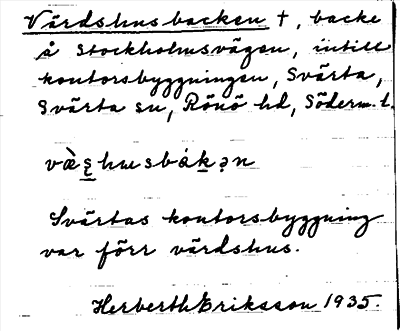 Värdshusbacken †, backe
å Stockholmsvägen, intill
kontorsbyggningen, Svärta,
Svärta sn, Rönö hd, Söderm. l.
Svärtas kontorsbyggning
var förr värdshus.
Herberth Eriksson 1935.